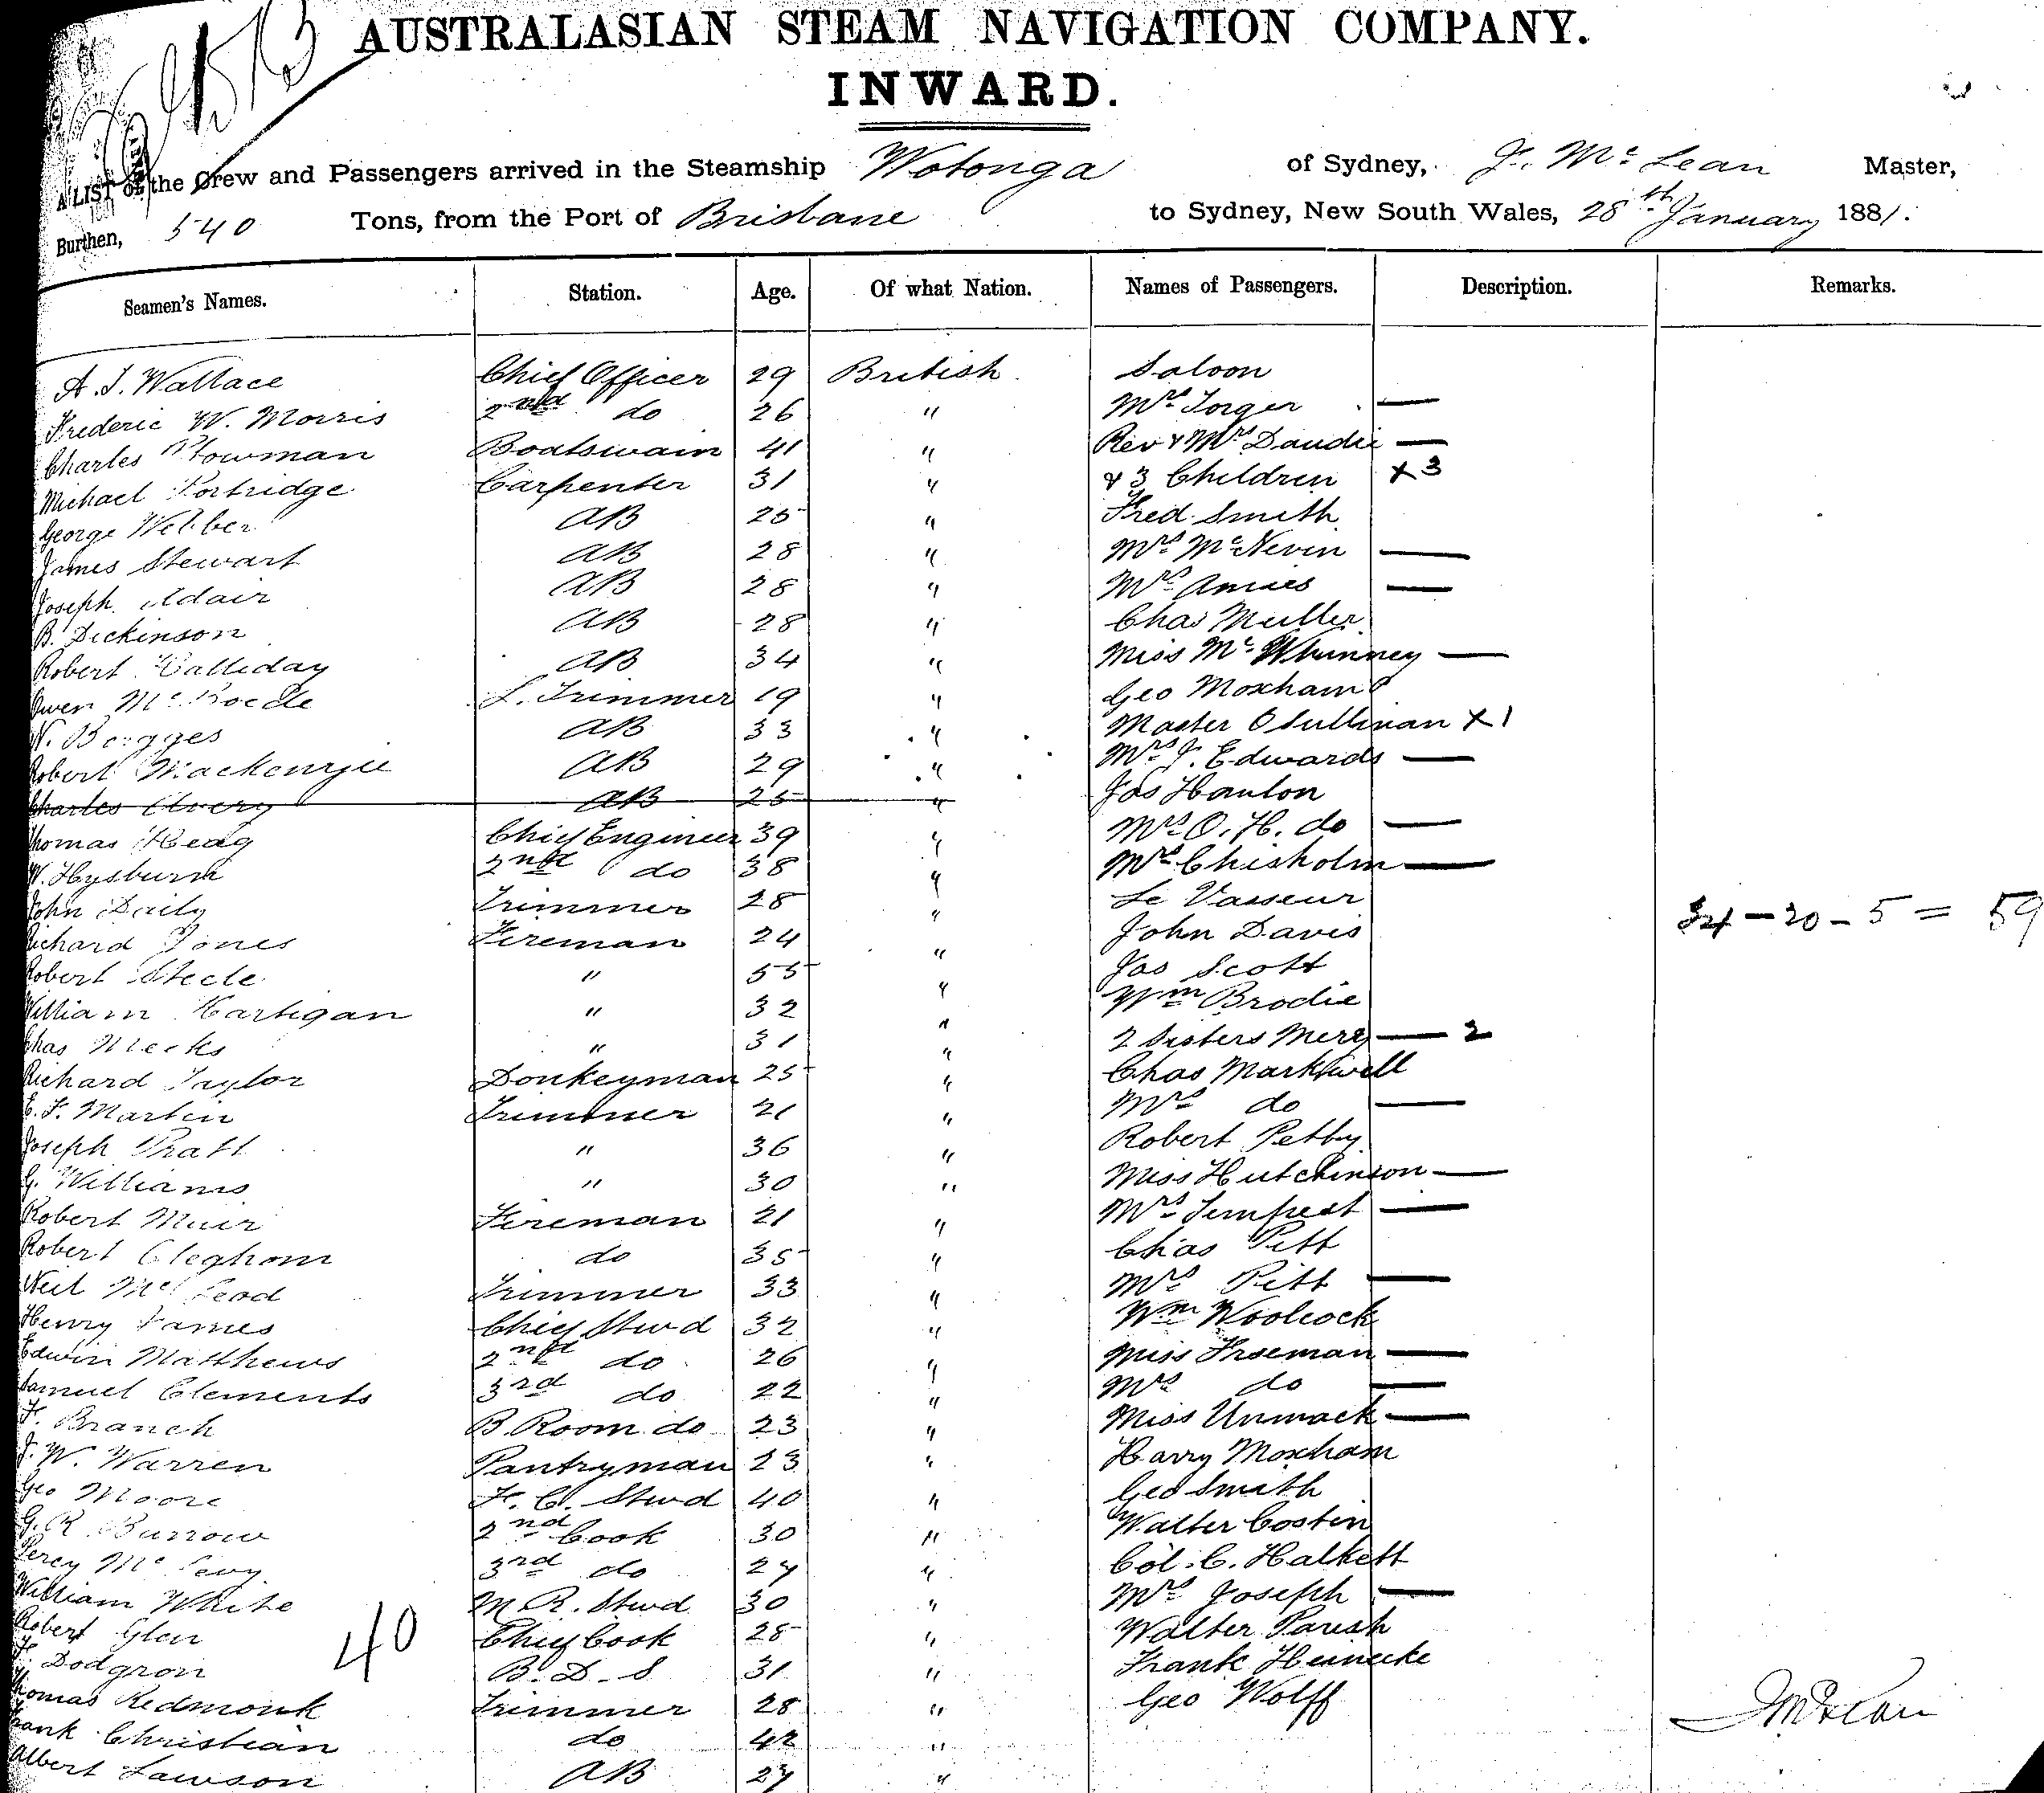 AUSTRALASIAN STEAM NAVIGATION COMPANY.
INWARD.
A LIST of the Crew and Passengers arrived in the Steamship Wotonga of Sydney, J. Mc Lean Master,
Burthen, 540 Tons, from the Port of Brisbane to Sydney, New South Wales, 28th January 1881.
Seamen's Names. Station. Age. Of what Nation. Names of Passengers. Description. Remarks.
A. J. Wallace Chief Officer 29 British Saloon
Frederic W. Morris 2nd do 26 " Mrs Torger —
Charles Plowman Boatswain 41 " Rev & Mrs Daudie —
Michael Portridge Carpenter 31 " & 3 Children x 3
George Webber AB 25 " Fred Smith
James Stewart AB 28 " Mrs McNevin —
Joseph Adair AB 28 " Mrs Amies —
B. Dickinson AB 28 " Chas Muller
Robert Halliday AB 34 " Miss Mc Whinney —
Owen Mc L. Trimmer 19 " Geo Moxham
W. Bogges AB 33 " Master O Sullivan x 1
Robert Mackenzie AB 29 " Mrs J. Edwards —
Charles Avery AB 25 " Jas Hanlon
Thomas Heag Chief Engineer 39 " Mrs O. H. do —
W. Hysburn 2nd do 38 " Mrs Chisholm —
John Daily Trimmer 28 " Le Vasseur
Richard Jones Fireman 24 " John Davis 34 — 20 — 5 = 59
Robert Steele " 55 " Jas Scott
William Hartigan " 32 " Wm Brodie
Chas Meeks " 31 " 2 Sisters Mercy — 2
Richard Taylor Donkeyman 25 " Chas Markwell
E. F. Martin Trimmer 21 " Mrs do —
Joseph Pratt " 36 " Robert Petty
G. Williams " 30 " Miss Hutchinson —
Robert Muir Fireman 21 " Mrs Tempest —
Robert Cleghorn do 35 " Chas Pitt
Neil McLeod Trimmer 33 " Mrs Pitt —
Henry James Chief Stwd 32 " Wm Woolcock
Edwin Matthews 2nd do 26 " Miss Freeman —
Samuel Clements 3rd do 22 " Mrs do —
F. Branch B. Room do 23 " Miss Unmack —
J. W. Warren Pantryman 23 " Harry Moxham
Geo Moore F. C. Stwd 40 " Geo Smith
G. R. Burrow 2nd Cook 30 " Walter Costin
Percy Mc Levy 3rd do 27 " Col. C. Halkett
William White M. R. Stwd 30 " Mrs Joseph —
Robert Glen 40 Chief Cook 28 " Walter Parish
F. Dodgron B. D. S 31 " Frank Heinecke
Thomas Redmonk Trimmer 28 " Geo Wolff J McLean
Frank Christian do 42 "
Albert Lawson AB 27 "